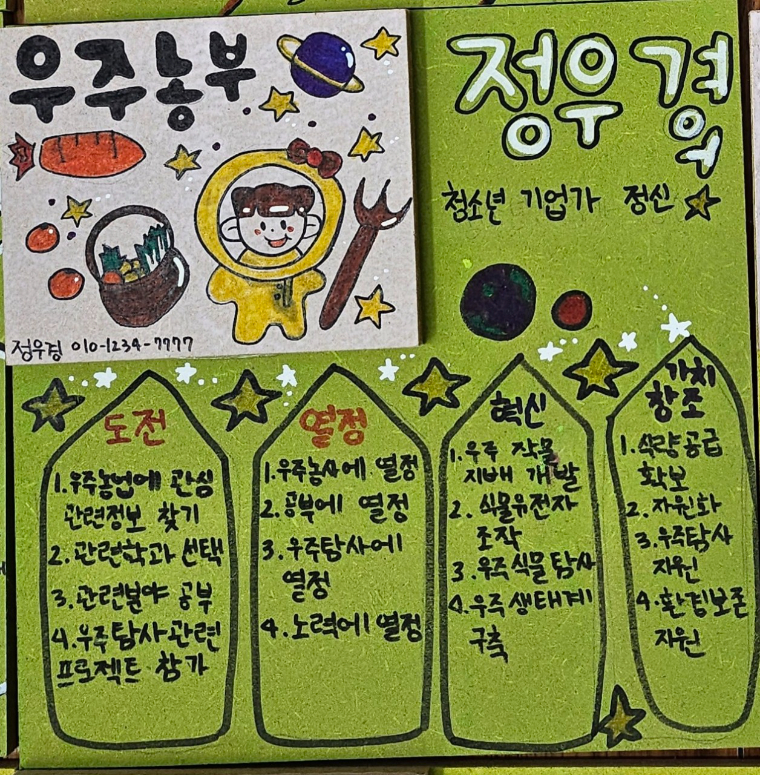 우주농부
정우경 010-1234-7777
정우경
청소년 기업가 정신
도전
1. 우주농업에 관심
관련정보 찾기
2. 관련학과 선택
3. 관련분야 공부
4. 우주탐사 관련
프로젝트 참가
열정
1. 우주농사에 열정
2. 공부에 열정
3. 우주탐사에
열정
4. 노력에 열정
혁신
1. 우주 작물
지배 개발
2. 식물유전자
조작
3. 우주식물탐사
4. 우주생태계
구축
가치
창조
1. 식량공급
확보
2. 자원화
3. 우주탐사
자원
4. 환경보존
자원